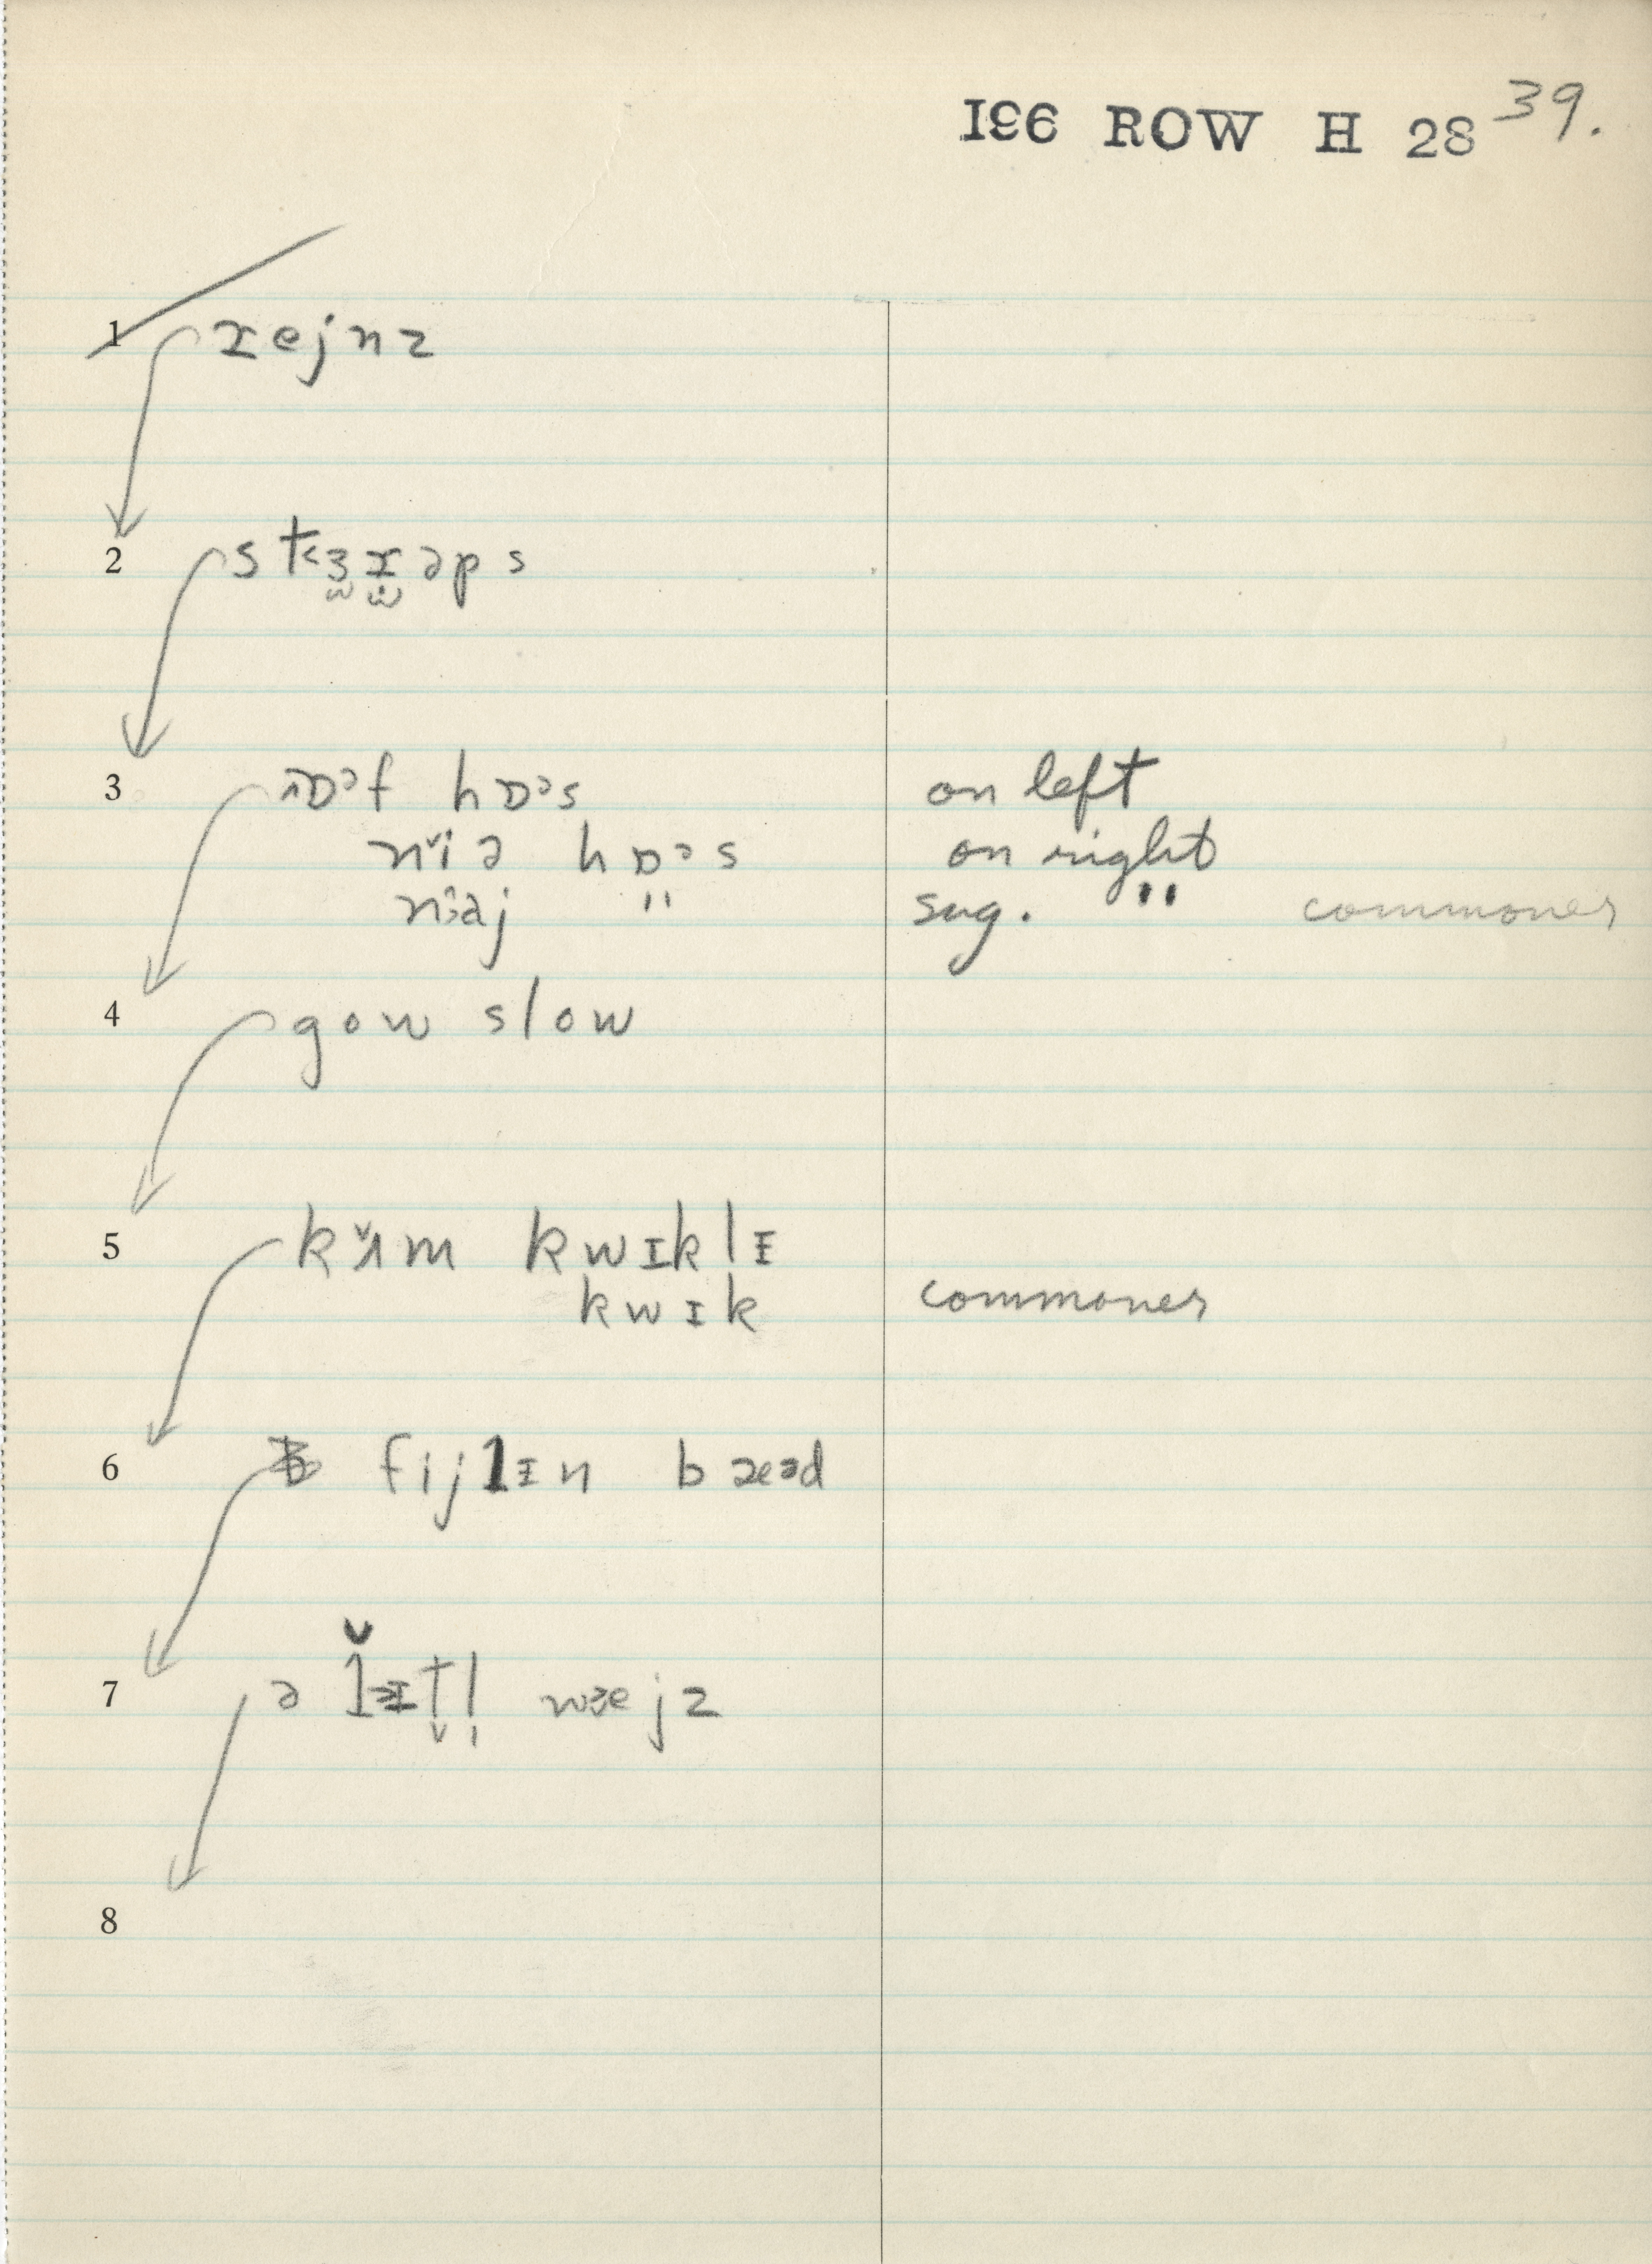 196 ROW H 28 39.
1 ɹejnz
2 st<ɜɹəps
3 ɒᵊf hɒᵊs on left
nɪ̆ə hɒᵊs on right
nɪəj " sug. " commoner
4 gow slow
5 kʌ̆m kwɪklɪ
kwɪk commoner
6 fijlɪn bæəd
7 ə lɪtl wejz
8